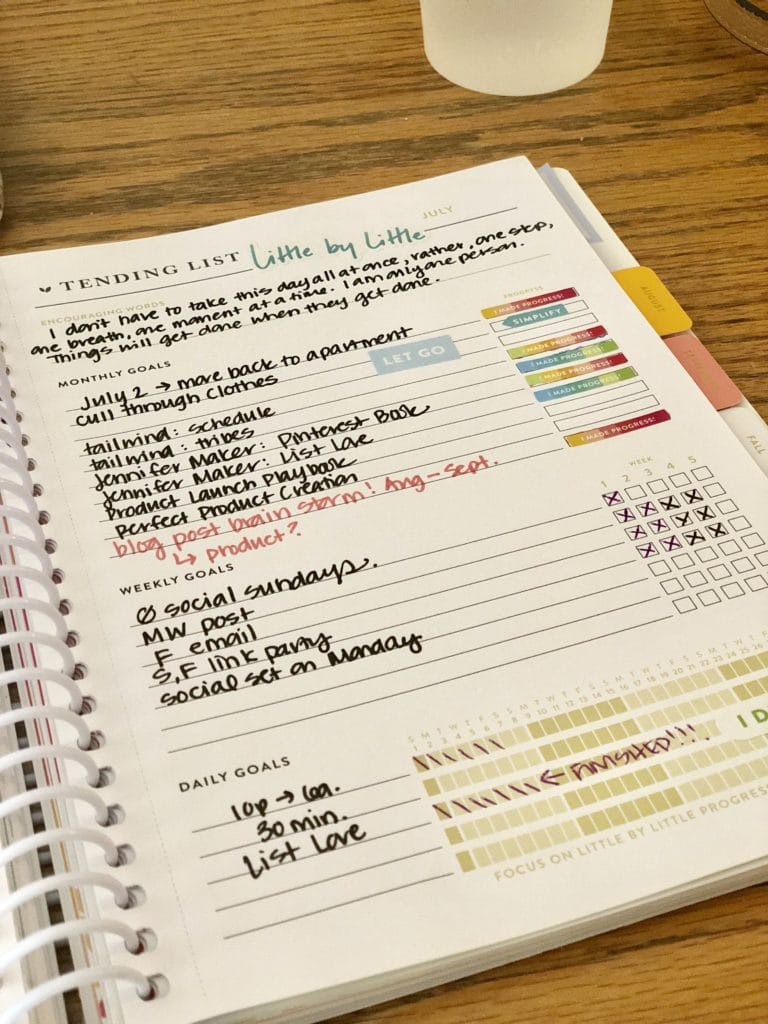 JULY
TENDING LIST Little by Little
ENCOURAGING WORDS
I don't have to take this day all at once, rather, one step,
one breath, one moment at a time. I am only one person.
Things will get done when they get done.
PROGRESS
MONTHLY GOALS
I MADE PROGRESS!
SIMPLIFY
July 2 → move back to apartment
LET GO
cull through clothes
I MADE PROGRESS!
I MADE PROGRESS!
tailwind: schedule
I MADE PROGRESS!
tailwind: tribes
I MADE PROGRESS!
Jennifer Maker: Pinterest Basic
Jennifer Maker: List Love
I MADE PROGRESS!
Product Launch Playbook
Perfect Product Creation
blog post brain storm! Aug-Sept.
↳ product?
AUGUST
FALL
WEEK
1 2 3 4 5
WEEKLY GOALS
social sundays.
MW post
F email
S, F link party
social set on Monday
S M T W T F S S M T W T F S S M T W T F S S M T W
1 2 3 4 5 6 7 8 9 10 11 12 13 14 15 16 17 18 19 20 21 22 23 24 25 26
DAILY GOALS
10p → 6a.
30 min.
← FINISHED!!!
I D
List Love
FOCUS ON LITTLE BY LITTLE PROGRESS